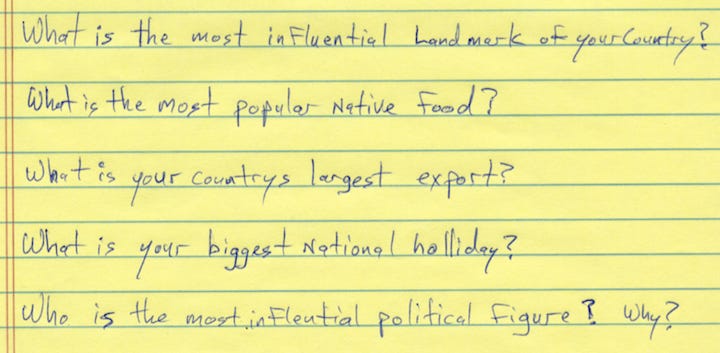 What is the most influential Landmark of your Country?
What is the most popular Native Food?
What is your Countrys largest export?
What is your biggest National holliday?
Who is the most influential political Figure? Why?